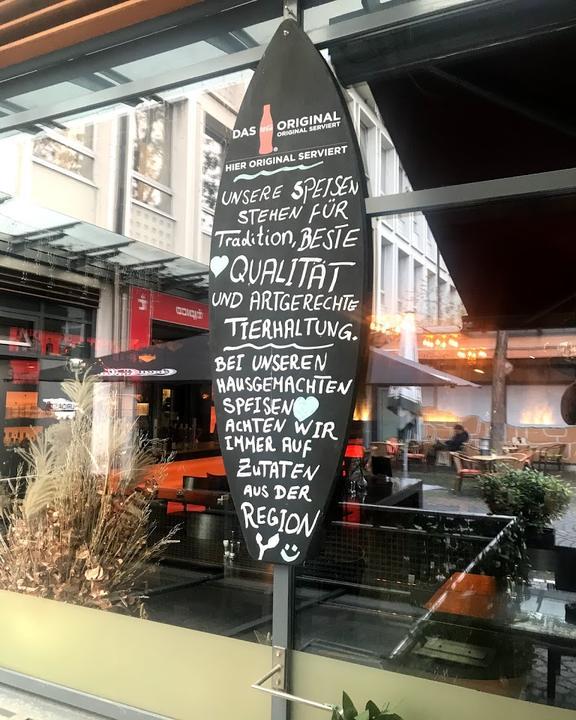 DAS Coca-Cola ORIGINAL
ORIGINAL SERVIERT
HIER ORIGINAL SERVIERT
UNSERE SPEISEN
STEHEN FÜR
Tradition, BESTE
QUALITÄT
UND ARTGERECHTE
TIERHALTUNG.
BEI UNSEREN
HAUSGEMACHTEN
SPEISEN
ACHTEN WIR
IMMER AUF
ZUTATEN
AUS DER
REGION